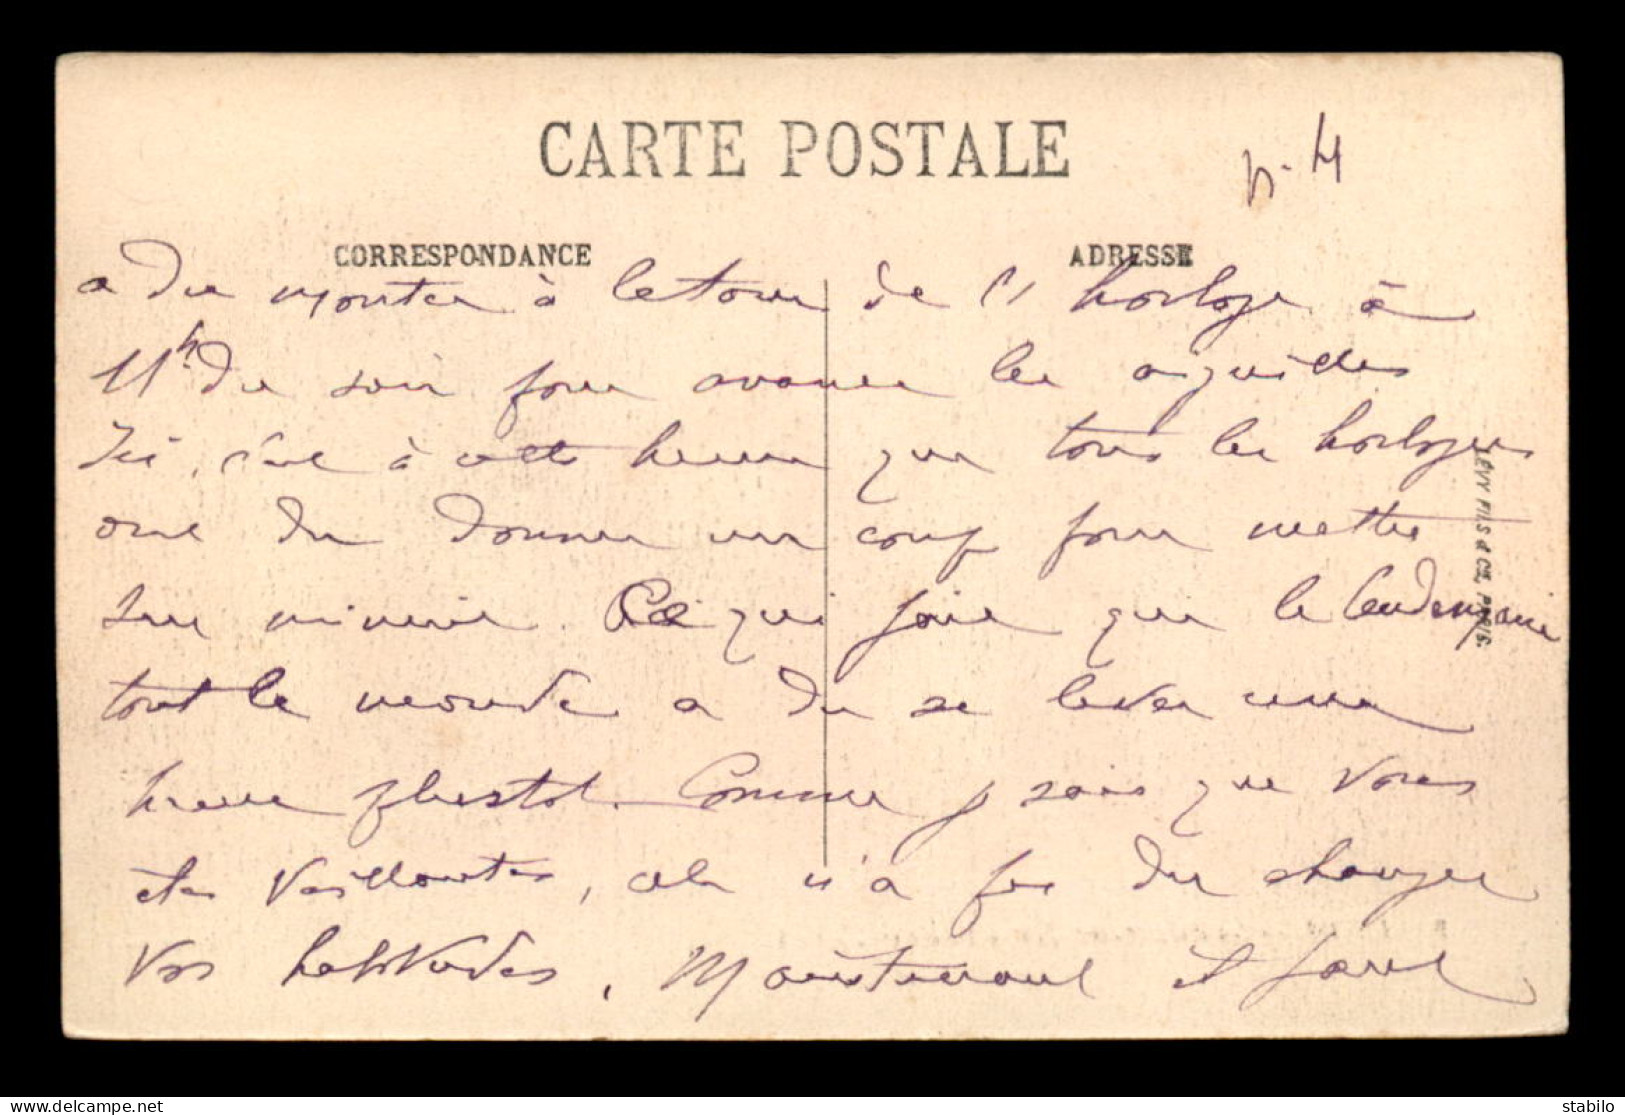 CARTE POSTALE
CORRESPONDANCE
ADRESSE
a du monter à la tour de l'horloge à
11h du soir pour avancer les aiguilles
Ici, c'est à cette heure que tous les horloges
ont du donner un coup pour mettre
sur minuit. Ce qui fait que le lendemain
tout le monde a du se lever une
heure plustot. Comme je sais que vous
êtes vaillantes, cela n'a pas du changer
vos habitudes. Maintenant il faut
LÉVY FILS & Cie, PARIS.
stabilo